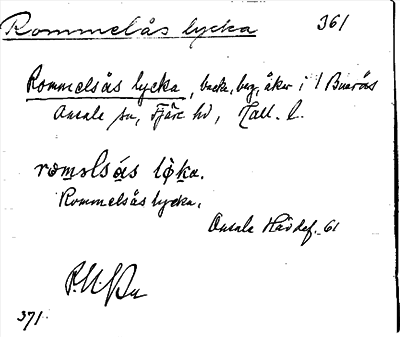 Rommelsås lycka 361
Rommelsås lycka, backe, berg, åker i 1 Buerås
Onsala sn, Fjäre hd, Hall. l.
roməlsås løka.
Rommelsås lycka.
Onsala Härdef. 61
371.